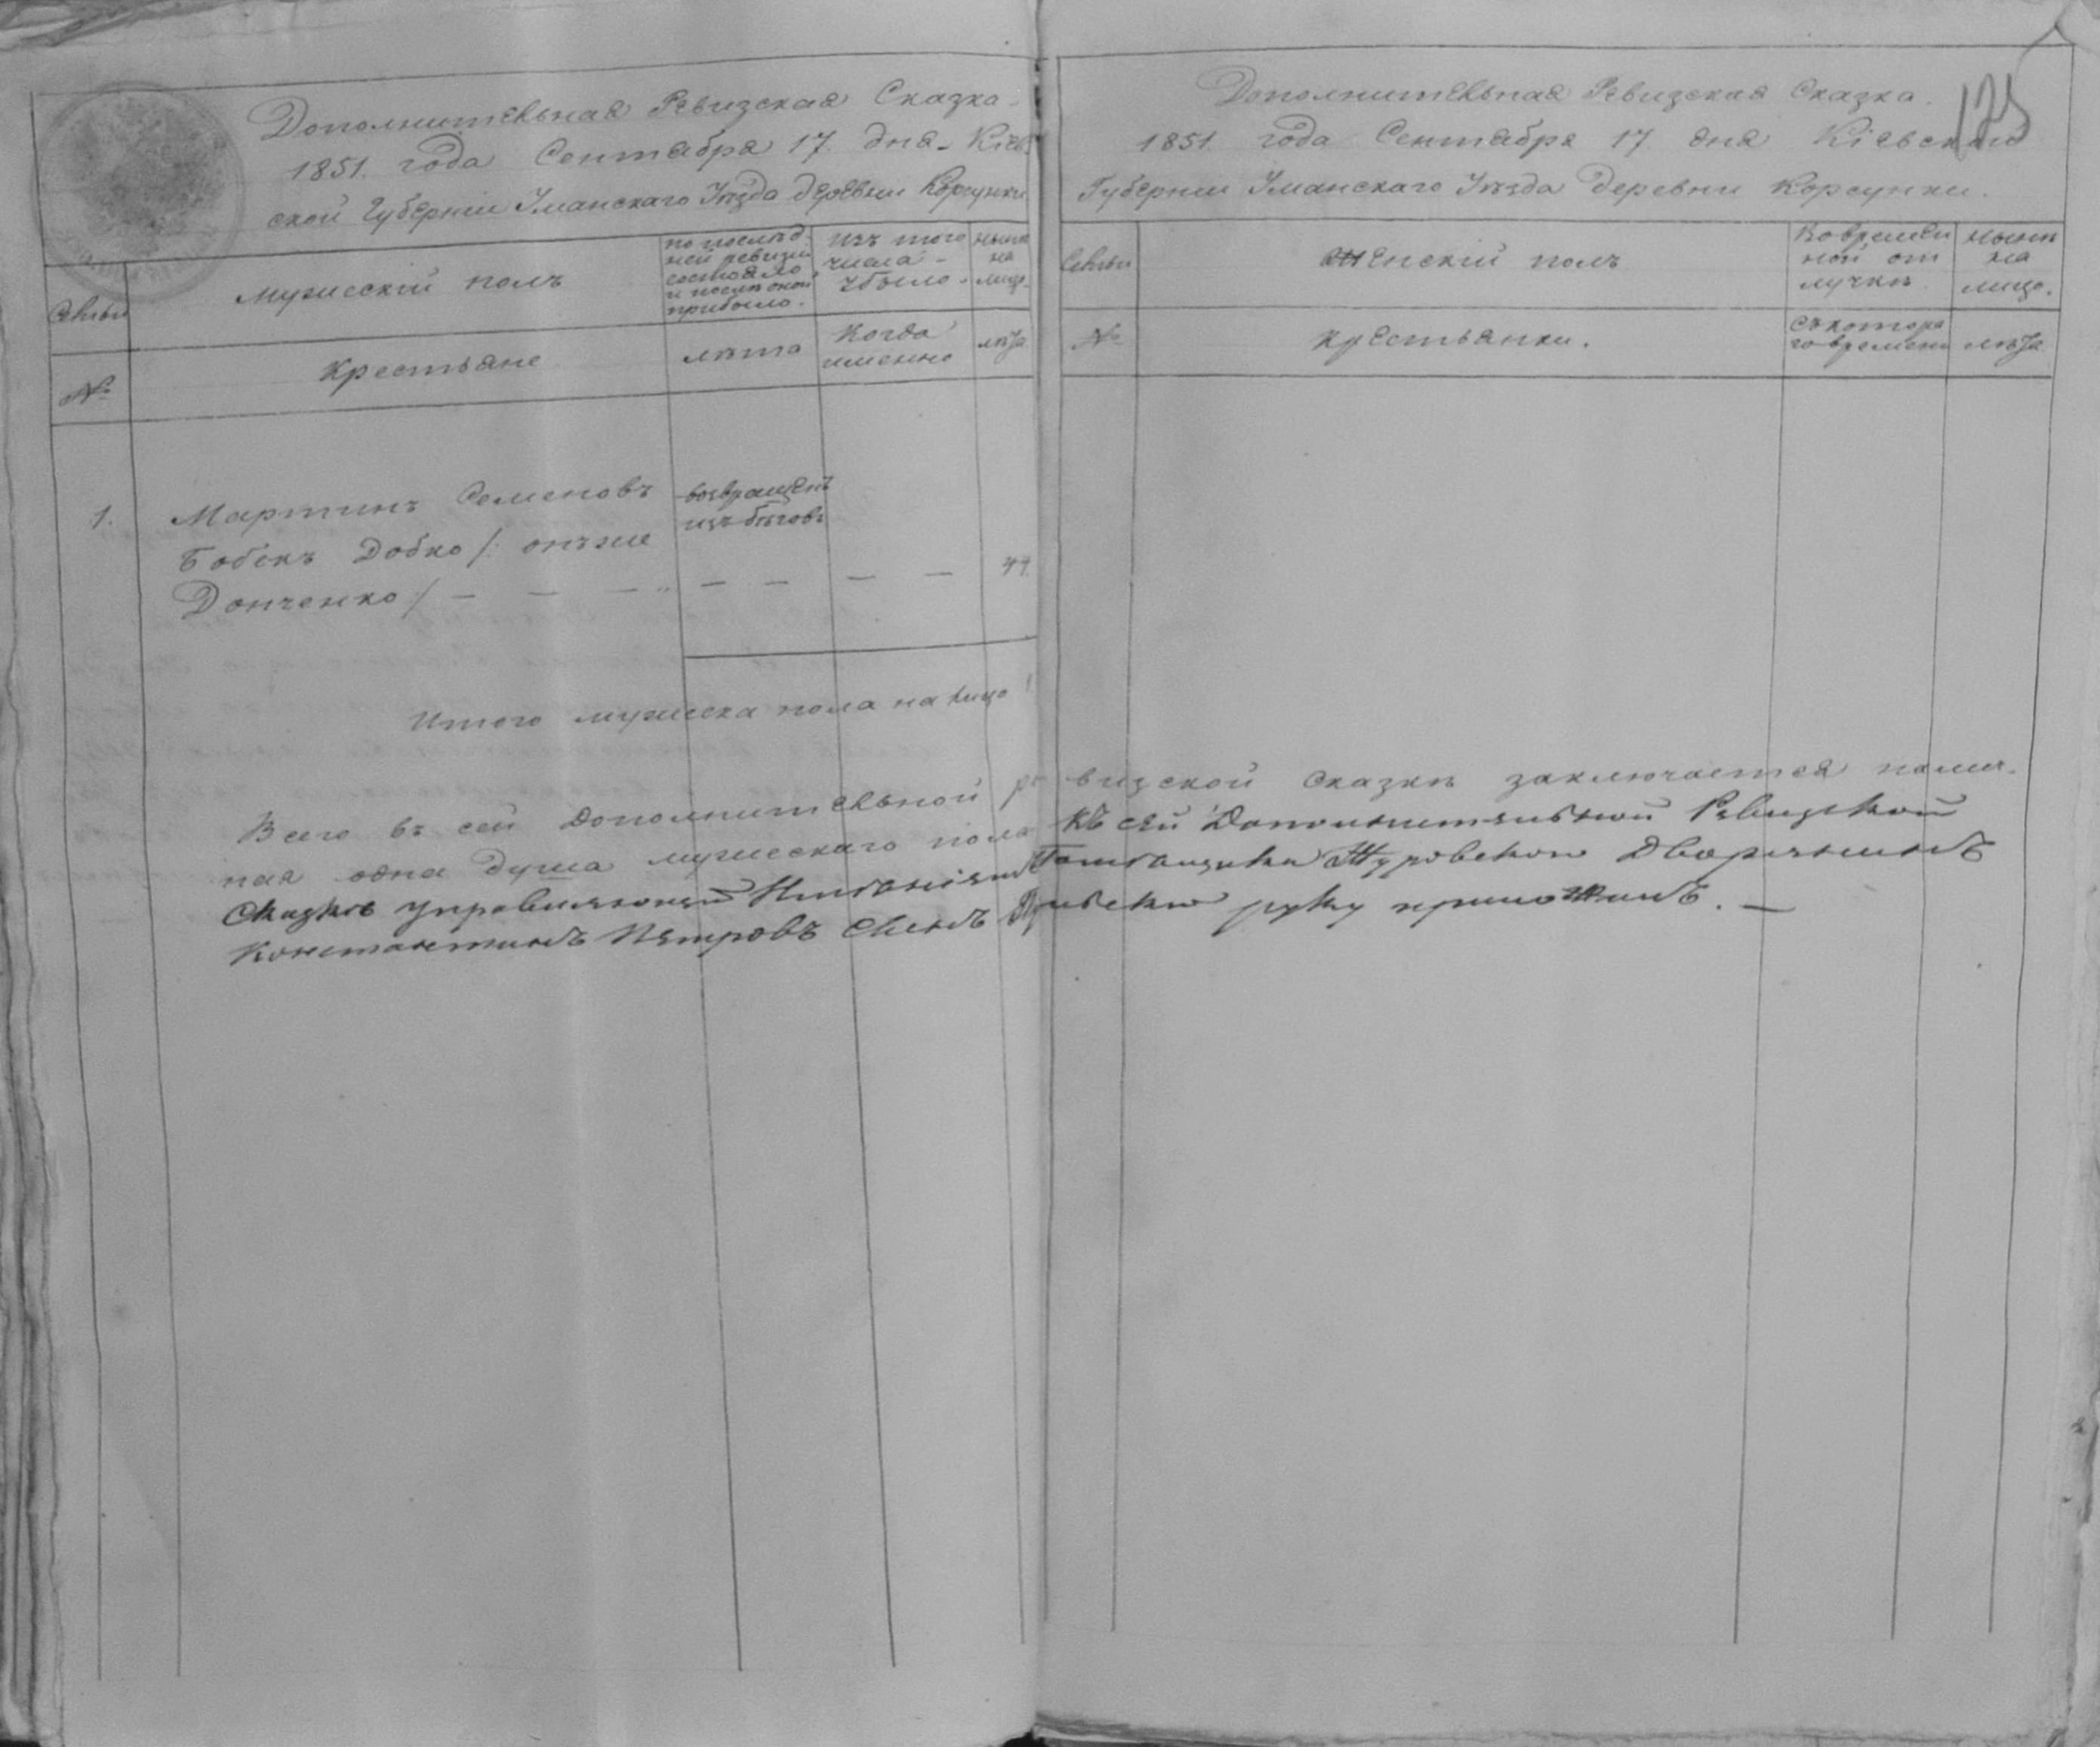 Дополнительная Ревизская Сказка
1851. года Сентября 17. дня. Кіев-
ской Губерніи Уманскаго Уѣзда деревни Корсунки
Семьи
Мужескій полъ
по послѣд-
ней ревизіи
состояло
и послѣ оной
прибыло.
Изъ того
числа
убыло.
нынѣ
на
лицо.
№
Крестьяне
лѣта
Когда
именно
лѣта
1.
Мартинъ Семеновъ
Бобекъ Добко /: онъ же
Донченко /
возвращенъ
изъ бѣговъ
44
Итого мужеска пола на лицо 1
125
Дополнительная Ревизская Сказка.
1851. года Сентября 17 дня Кіевской
Губерніи Уманскаго Уѣзда деревни Корсунки.
Семьи
Женскій полъ
Во времен
ной от
лучкѣ
нынѣ
на
лицо.
№
Крестьянки.
Съ котора
го времени
лѣта
Всего въ сей дополнительной ревизской сказкѣ заключается
ная одна душа мужескаго пола къ сей Дополнительной Ревизской
Сказкѣ управляющій Имѣніями Помѣщика Журовского Дворянинъ
Константинъ Петровъ Сынъ руку приложилъ. —